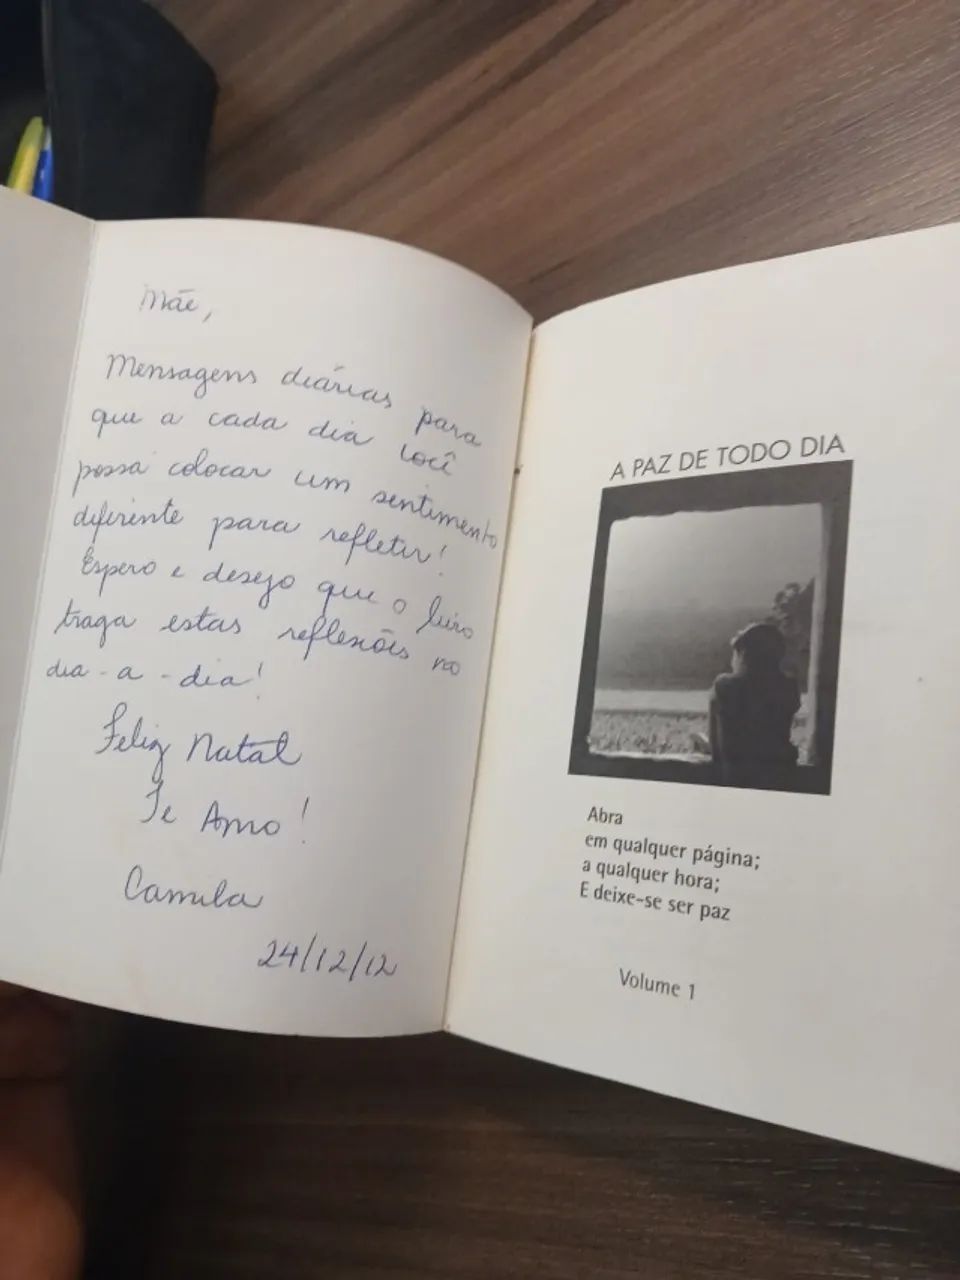 Mãe,
Mensagens diárias para
que a cada dia você
possa colocar um sentimento
diferente para refletir!
Espero e desejo que o livro
traga estas reflexões no
dia-a-dia!
Feliz Natal
Te Amo!
Camila
24/12/12
A PAZ DE TODO DIA
Abra
em qualquer página;
a qualquer hora;
E deixe-se ser paz
Volume 1